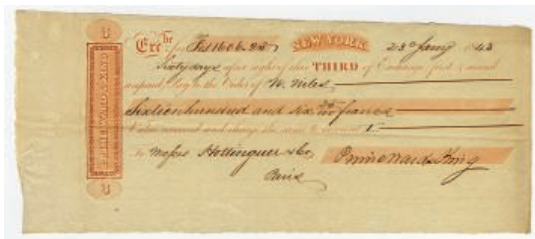 Exche for Fcs 1606.25 NEW YORK 23d Jany 1843
Sixty days after sight of this THIRD of Exchange first & second
unpaid, Pay to the Order of W. Niles
Sixteen hundred and six 25/100 francs
Value received and charge the same to account
To Messrs Hottinguer & Co, Prime Ward & King
Paris
PRIME WARD & KING